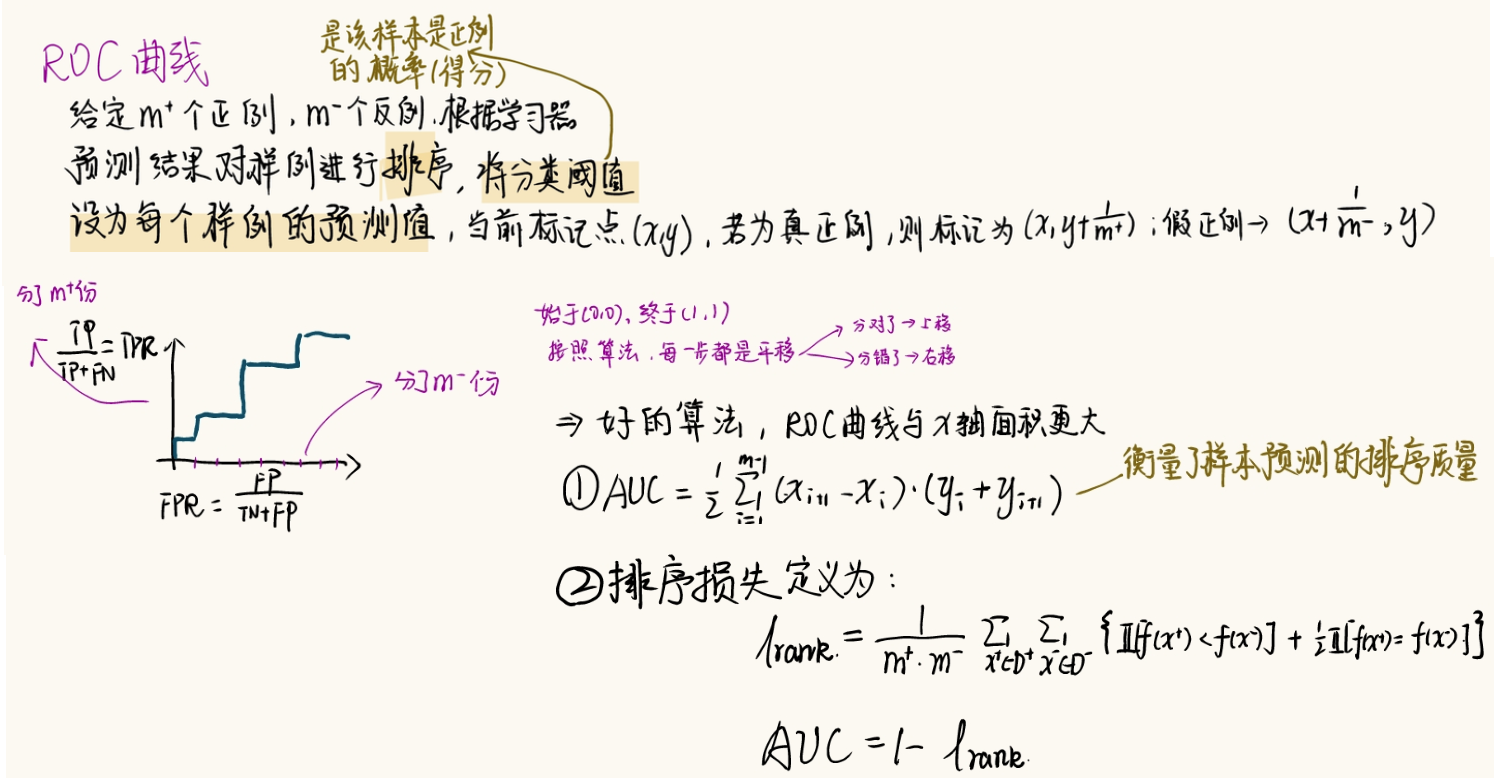 ROC曲线
是该样本是正例
的概率(得分)
给定m⁺个正例,m⁻个反例.根据学习器
预测结果对样例进行排序,将分类阈值
设为每个样例的预测值,当前标记点(x,y),若为真正例,则标记为(x,y+1/m⁺);假正例→(x+1/m⁻,y)
分了m⁺份
TP/(TP+FN)=TPR
分了m⁻份
FPR=FP/(TN+FP)
始于(0,0),终于(1,1)
按照算法,每一步都是平移
分对了→上移
分错了→右移
⇒好的算法,ROC曲线与x轴面积更大
①AUC=1/2 ∑_{i=1}^{m-1}(x_{i+1}-x_i)·(y_i+y_{i+1})
衡量了样本预测的排序质量
②排序损失定义为:
l_rank.=1/(m⁺·m⁻) ∑_{x⁺∈D⁺} ∑_{x⁻∈D⁻}{𝕀[f(x⁺)<f(x⁻)]+1/2𝕀[f(x⁺)=f(x⁻)]}
AUC=1-l_rank.